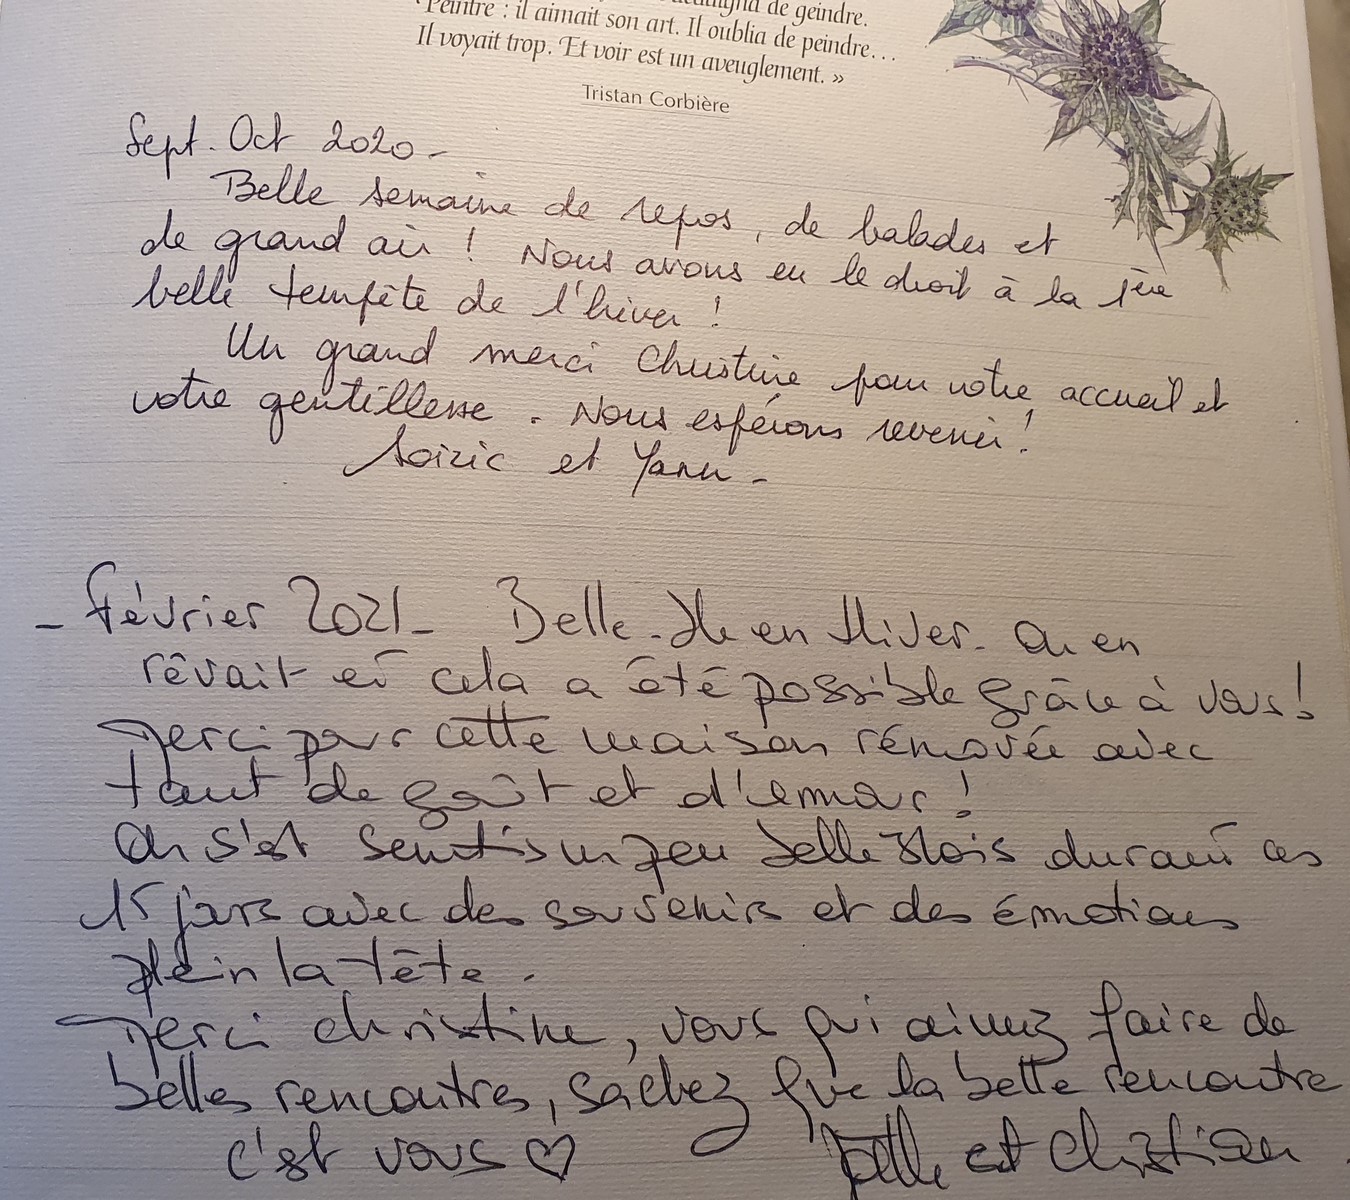 de geindre.
Peintre : il aimait son art. Il oublia de peindre...
Il voyait trop. Et voir est un aveuglement. »
Tristan Corbière
Sept. Oct 2020 -
Belle semaine de repos, de balades et
de grand air ! Nous avons eu le droit à la 1ère
belle tempête de l'hiver !
Un grand merci Christine pour votre accueil et
votre gentillesse. Nous espérons revenir !
Soizic et Yann -
- Février 2021 - Belle-Ile en Hiver. On en
rêvait et cela a été possible grâce à vous !
Merci pour cette maison rénovée avec
tant de goût et d'amour !
On s'est sentis un peu belle Ilois durant ces
15 jours avec des souvenirs et des émotions
plein la tête.
Merci christine, vous qui aimez faire de
belles rencontres, sachez que la belle rencontre
c'est vous ♡ et Christian